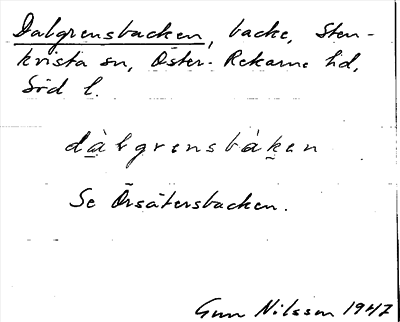 Dalgrensbacken, backe, Sten-
kvista sn, Öster-Rekarne hd,
Söd l.
dàlgrensbáken
Se Örsätersbacken.
Gun Nilsson 1947